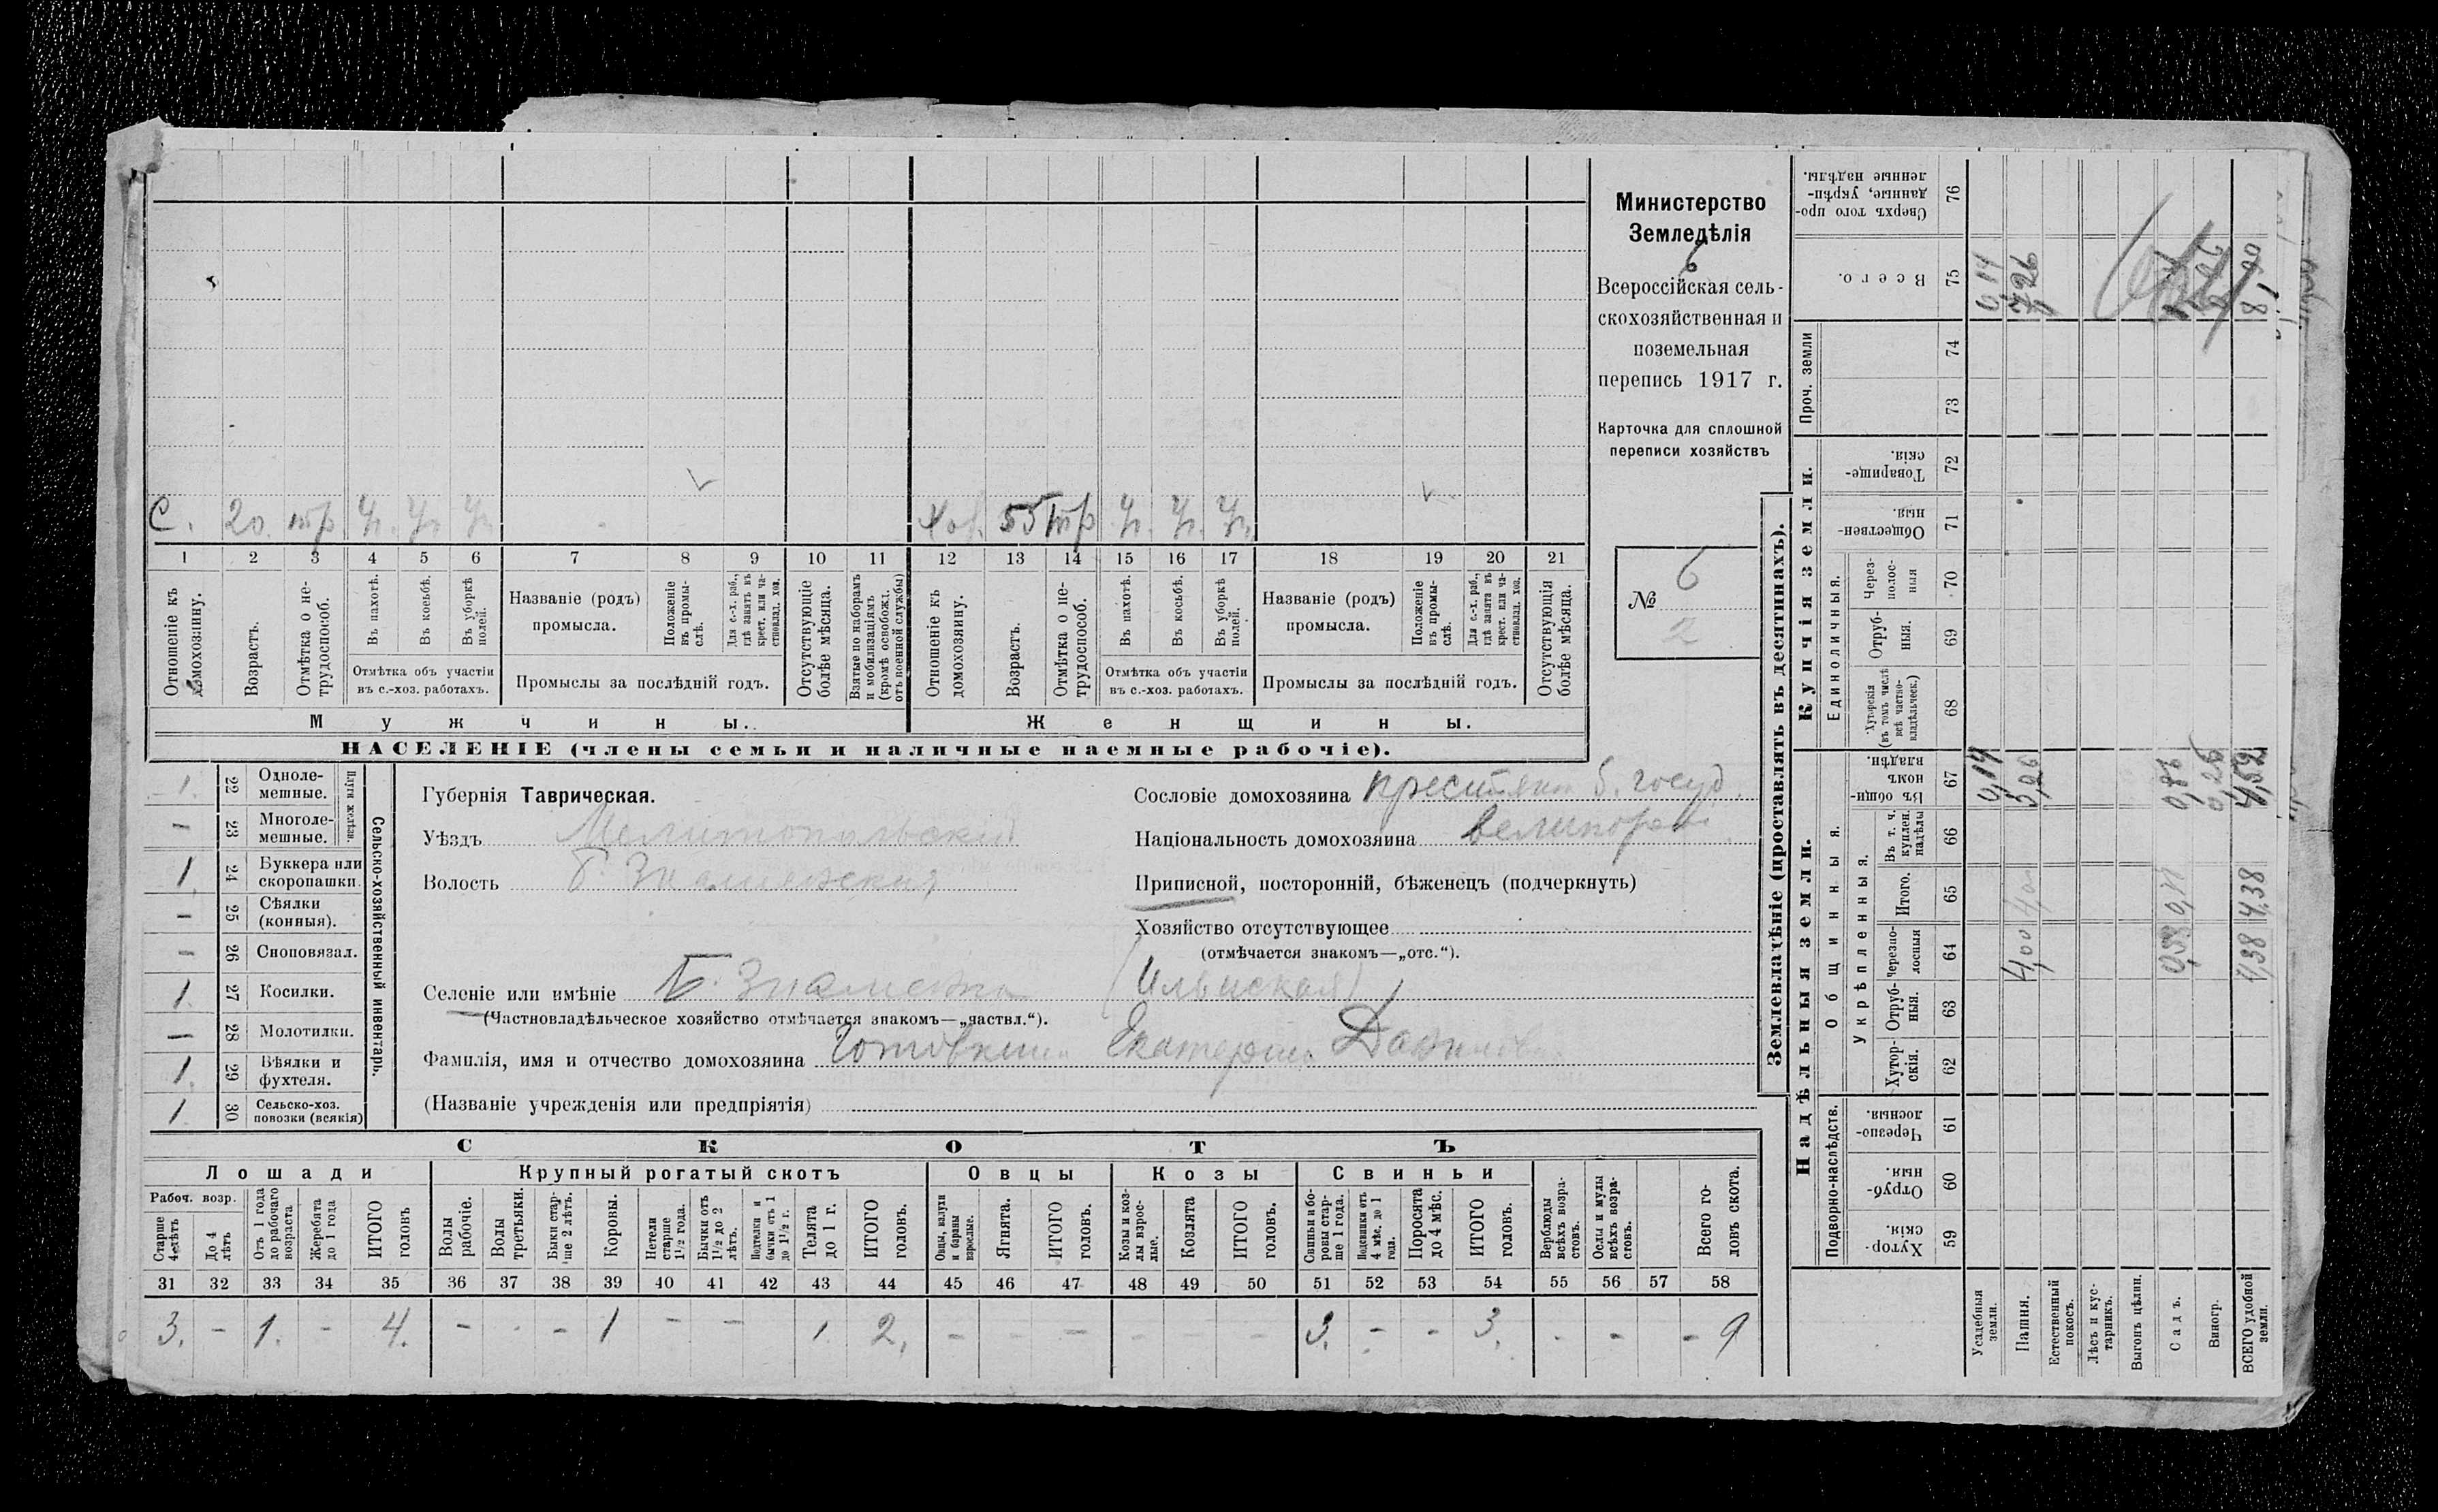 С. 20. тр Уч. Уч. Уч. Хоз. 55 тр Уч. Уч. Уч.
1 2 3 4 5 6 7 8 9 10 11 12 13 14 15 16 17 18 19 20 21
Отношеніе къ домохозяину.
Возрастъ.
Отмѣтка о нетрудоспособ.
Въ пахотѣ.
Въ косьбѣ.
Въ уборкѣ полей.
Отмѣтка объ участіи
въ с.-хоз. работахъ.
Названіе (родъ)
промысла.
Положеніе въ промыслѣ.
Для с.-х. раб., гдѣ занятъ въ крест. или частновлад. хоз.
Промыслы за послѣдній годъ.
Отсутствующіе болѣе мѣсяца.
Взятые по наборамъ и мобилизаціямъ (кромѣ освобожд. отъ военной службы)
Отношеніе къ домохозяину.
Возрастъ.
Отмѣтка о нетрудоспособ.
Въ пахотѣ.
Въ косьбѣ.
Въ уборкѣ полей.
Отмѣтка объ участіи
въ с.-хоз. работахъ.
Названіе (родъ)
промысла.
Положеніе въ промыслѣ.
Для с.-х. раб., гдѣ занята въ крест. или частновлад. хоз.
Промыслы за послѣдній годъ.
Отсутствующія болѣе мѣсяца.
Мужчины.
Женщины.
НАСЕЛЕНІЕ (члены семьи и наличные наемные рабочіе).
Министерство
Земледѣлія
6
Всероссійская сель-
скохозяйственная и
поземельная
перепись 1917 г.
Карточка для сплошной
переписи хозяйствъ
№ 6
2
Сельско-хозяйственный инвентарь.
Плуги желѣзн.
1. 22 Одноле-
мешные.
— 23 Многоле-
мешные.
1 24 Буккера или
скоропашки.
— 25 Сѣялки
(конныя).
— 26 Сноповязал.
1. 27 Косилки.
— 28 Молотилки.
1. 29 Вѣялки и
фухтеля.
1 30 Сельско-хоз.
повозки (всякія)
Губернія Таврическая.
Уѣздъ Мелитопольскій
Волость Б. Знаменская
Селеніе или имѣніе Б. Знаменка (Ильинская)
(Частновладѣльческое хозяйство отмѣчается знакомъ—„частвл.“).
Фамилія, имя и отчество домохозяина Екатерина
(Названіе учрежденія или предпріятія)
Сословіе домохозяина крестьян б. госуд.
Національность домохозяина великоросс
Приписной, посторонній, бѣженецъ (подчеркнуть)
Хозяйство отсутствующее
(отмѣчается знакомъ—„отс.“).
СКОТЪ
Лошади Крупный рогатый скотъ Овцы Козы Свиньи
Рабоч. возр.
Старше 4 лѣтъ
До 4 лѣтъ
Отъ 1 года до рабочаго возраста
Жеребята до 1 года
ИТОГО головъ
Волы рабочіе.
Волы третьяки.
Быки старше 2 лѣтъ.
Коровы.
Нетели старше 1½ года.
Бычки отъ 1½ до 2 лѣтъ.
Подтелки и бычки отъ 1 до 1½ г.
Телята до 1 г.
ИТОГО головъ.
Овцы, валухи и бараны взрослые.
Ягнята.
ИТОГО головъ.
Козы и козлы взрослые.
Козлята
ИТОГО головъ.
Свиньи и боровы старше 1 года.
Подсвинки отъ 4 мѣс. до 1 года.
Поросята до 4 мѣс.
ИТОГО головъ.
Верблюды всѣхъ возрастовъ.
Ослы и мулы всѣхъ возрастовъ.
Всего головъ скота.
31 32 33 34 35 36 37 38 39 40 41 42 43 44 45 46 47 48 49 50 51 52 53 54 55 56 57 58
3. - 1. - 4. - - - 1 - - 1. 2. - - - - - - 3. - - 3. - - - 9
Землевладѣніе (проставлять въ десятинахъ).
Надѣльныя земли.
Купчія земли.
Проч. земли
Подворно-наслѣдств.
Общинныя.
Укрѣпленныя.
Единоличныя.
Хуторскія. 59
Отрубныя. 60
Черезполосныя. 61
Хуторскія. 62
Отрубныя. 63
Черезполосныя 64
Итого. 65
Въ т. ч. куплен. надѣлы 66
Въ общинномъ владѣн. 67
Хуторскія (въ томъ числѣ всѣ частновладѣльческ.) 68
Отрубныя. 69
Черезполосныя 70
Общественныя. 71
Товарищескія. 72
73
74
Всего. 75
Сверхъ того проданные, укрѣпленные надѣлы. 76
Усадебныя земли. 0,14 0,14
Пашня. 4,00 4,00 3,26 7,26
Естественный покосъ.
Лѣсъ и кустарникъ.
Выгонъ цѣлин.
Садъ. 0,38 0,86
Виногр. 0,26
ВСЕГО удобной земли. 4,38 4,38 4,52 8,90